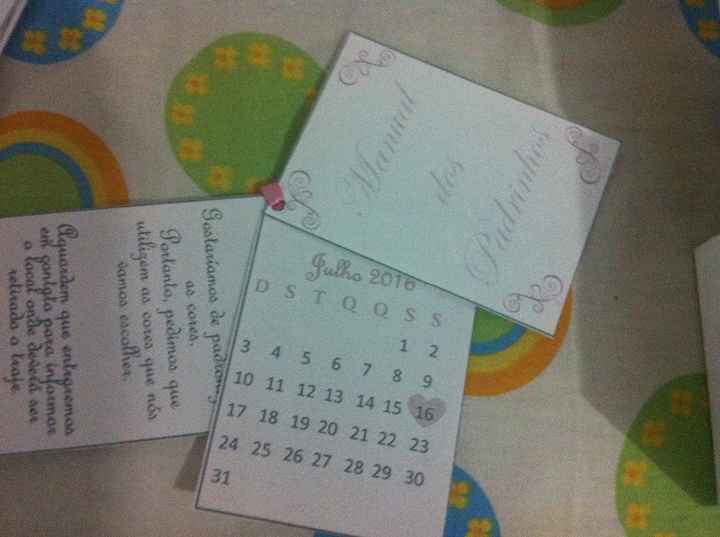 Manual
dos
Padrinhos
Julho 2016
D S T Q Q S S
1 2
3 4 5 6 7 8 9
10 11 12 13 14 15 16
17 18 19 20 21 22 23
24 25 26 27 28 29 30
31
Gostaríamos de
as cores.
Portanto, pedimos que
utilizem as cores que nós
vamos escolher.
Aguardem que entraremos
em contato para informar
o local onde deverá ser
retirado o traje.